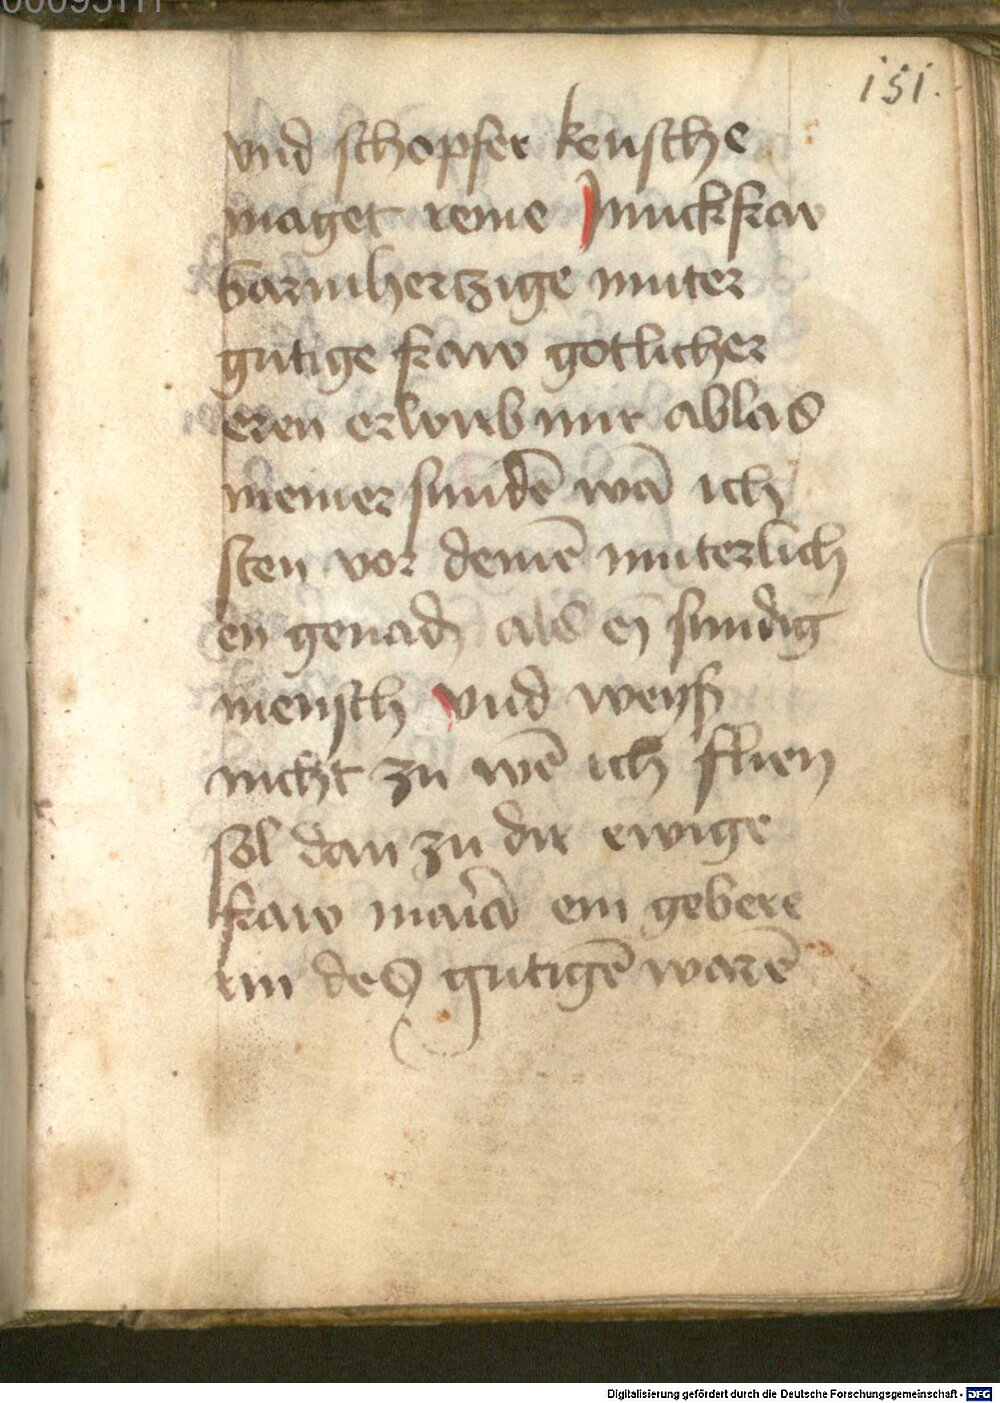 151.
vnd schopfer keusche
maget reine Junckfraw
barmhertzige muter
gutige fraw gotlicher
eren erwirb mir ablas
meiner sundē wā ich
sten vor deinē muterlich
en genadē als eī sundig
mensch vnd weyß
nicht zu wē ich flien
sol dan zu dir ewige
fraw maria ein gebere
rin des gutigē warē
Digitalisierung gefördert durch die Deutsche Forschungsgemeinschaft - DFG